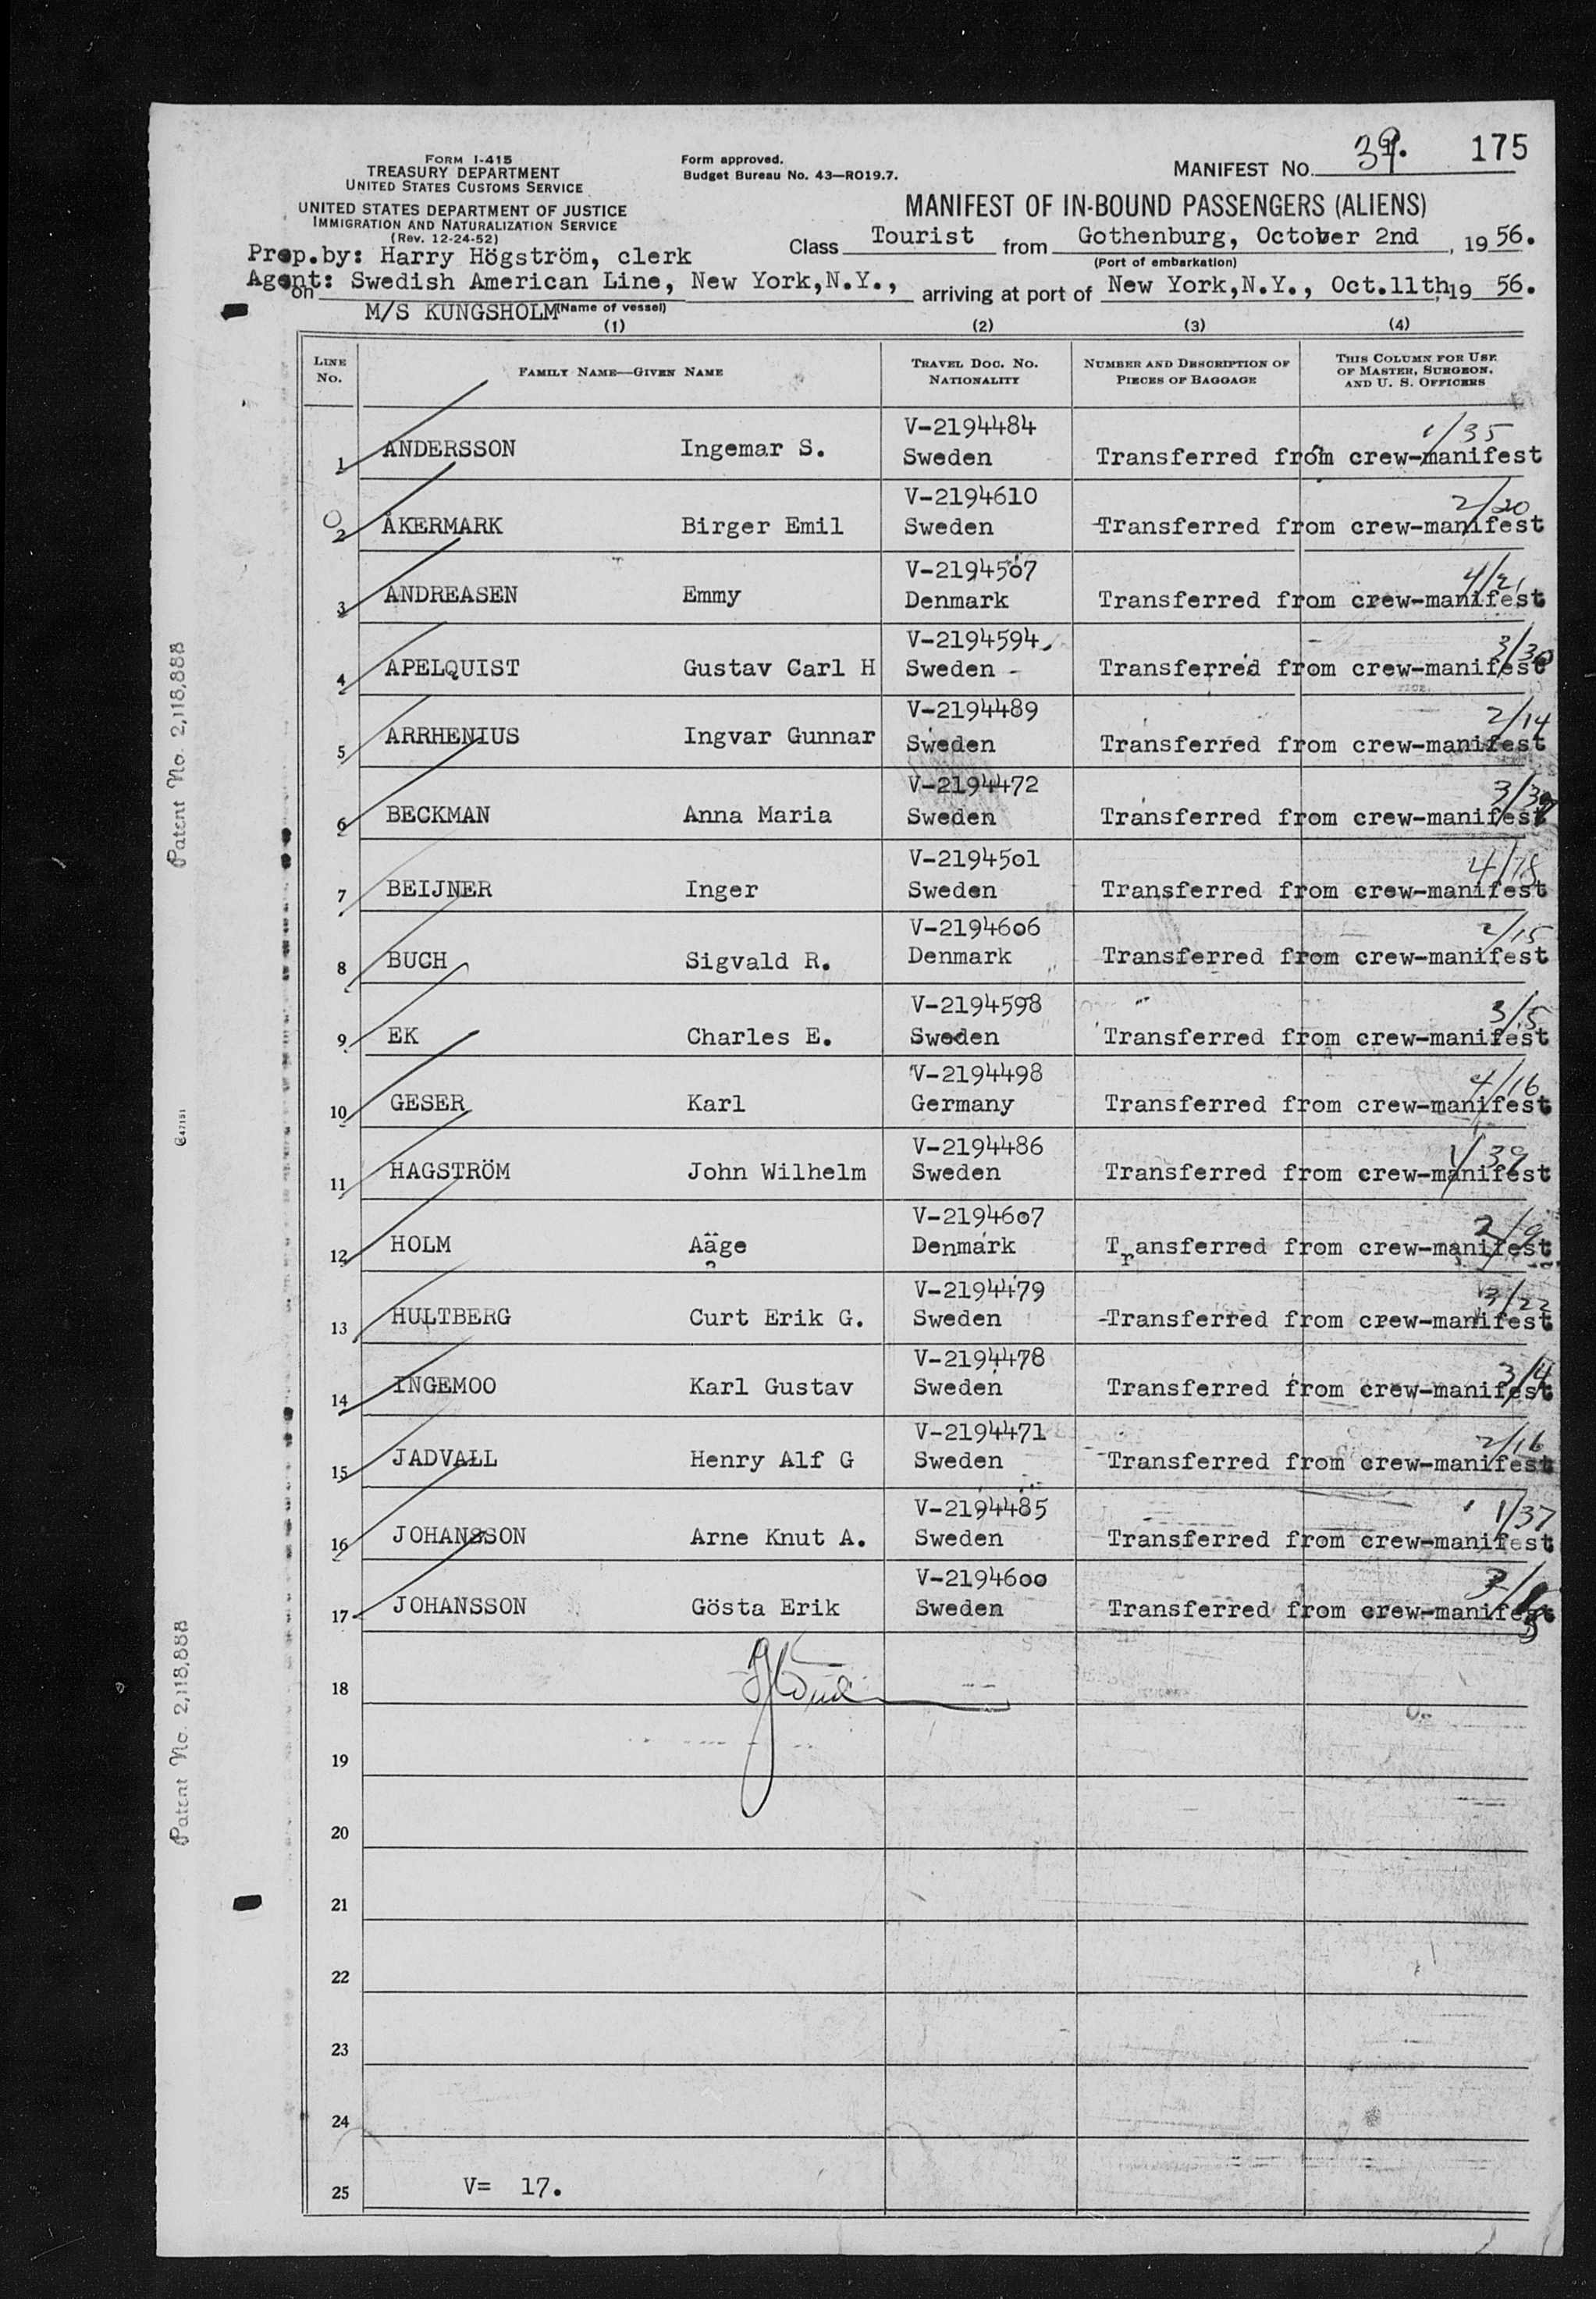 FORM I-415
TREASURY DEPARTMENT
UNITED STATES CUSTOMS SERVICE
UNITED STATES DEPARTMENT OF JUSTICE
IMMIGRATION AND NATURALIZATION SERVICE
(Rev. 12-24-52)
Form approved.
Budget Bureau No. 43—RO19.7.
MANIFEST NO. 175
MANIFEST OF IN-BOUND PASSENGERS (ALIENS)
Class Tourist from Gothenburg, October 2nd, 19 56.
(Port of embarkation)
Prep.by: Harry Högström, clerk
Agent: Swedish American Line, New York,N.Y., arriving at port of New York,N.Y., Oct.11th,19 56.
on M/S KUNGSHOLM (Name of vessel)
(1) (2) (3) (4)
LINE NO. FAMILY NAME—GIVEN NAME TRAVEL DOC. NO. NATIONALITY NUMBER AND DESCRIPTION OF PIECES OF BAGGAGE THIS COLUMN FOR USE OF MASTER, SURGEON, AND U. S. OFFICERS
1 ANDERSSON Ingemar S. V-2194484 Sweden Transferred from crew-manifest 1/35
2 ÅKERMARK Birger Emil V-2194610 Sweden Transferred from crew-manifest 2/20
3 ANDREASEN Emmy V-2194507 Denmark Transferred from crew-manifest
4 APELQUIST Gustav Carl H V-2194594 Sweden Transferred from crew-manifest
5 ARRHENIUS Ingvar Gunnar V-2194489 Sweden Transferred from crew-manifest 2/14
6 BECKMAN Anna Maria V-2194472 Sweden Transferred from crew-manifest
7 BEIJNER Inger V-2194501 Sweden Transferred from crew-manifest
8 BUCH Sigvald R. V-2194606 Denmark Transferred from crew-manifest 2/15
9 EK Charles E. V-2194598 Sweden Transferred from crew-manifest 3/5
10 GESER Karl V-2194498 Germany Transferred from crew-manifest 4/16
11 HAGSTRÖM John Wilhelm V-2194486 Sweden Transferred from crew-manifest 1/39
12 HOLM Aäge V-2194607 Denmark Transferred from crew-manifest 2/9
13 HULTBERG Curt Erik G. V-2194479 Sweden Transferred from crew-manifest
14 INGEMOO Karl Gustav V-2194478 Sweden Transferred from crew-manifest 3/4
15 JADVALL Henry Alf G V-2194471 Sweden Transferred from crew-manifest 2/16
16 JOHANSSON Arne Knut A. V-2194485 Sweden Transferred from crew-manifest 1/37
17 JOHANSSON Gösta Erik V-2194600 Sweden Transferred from crew-manifest
18
19
20
21
22
23
24
25 V= 17.
Patent No. 2,118,888
Patent No. 2,118,888